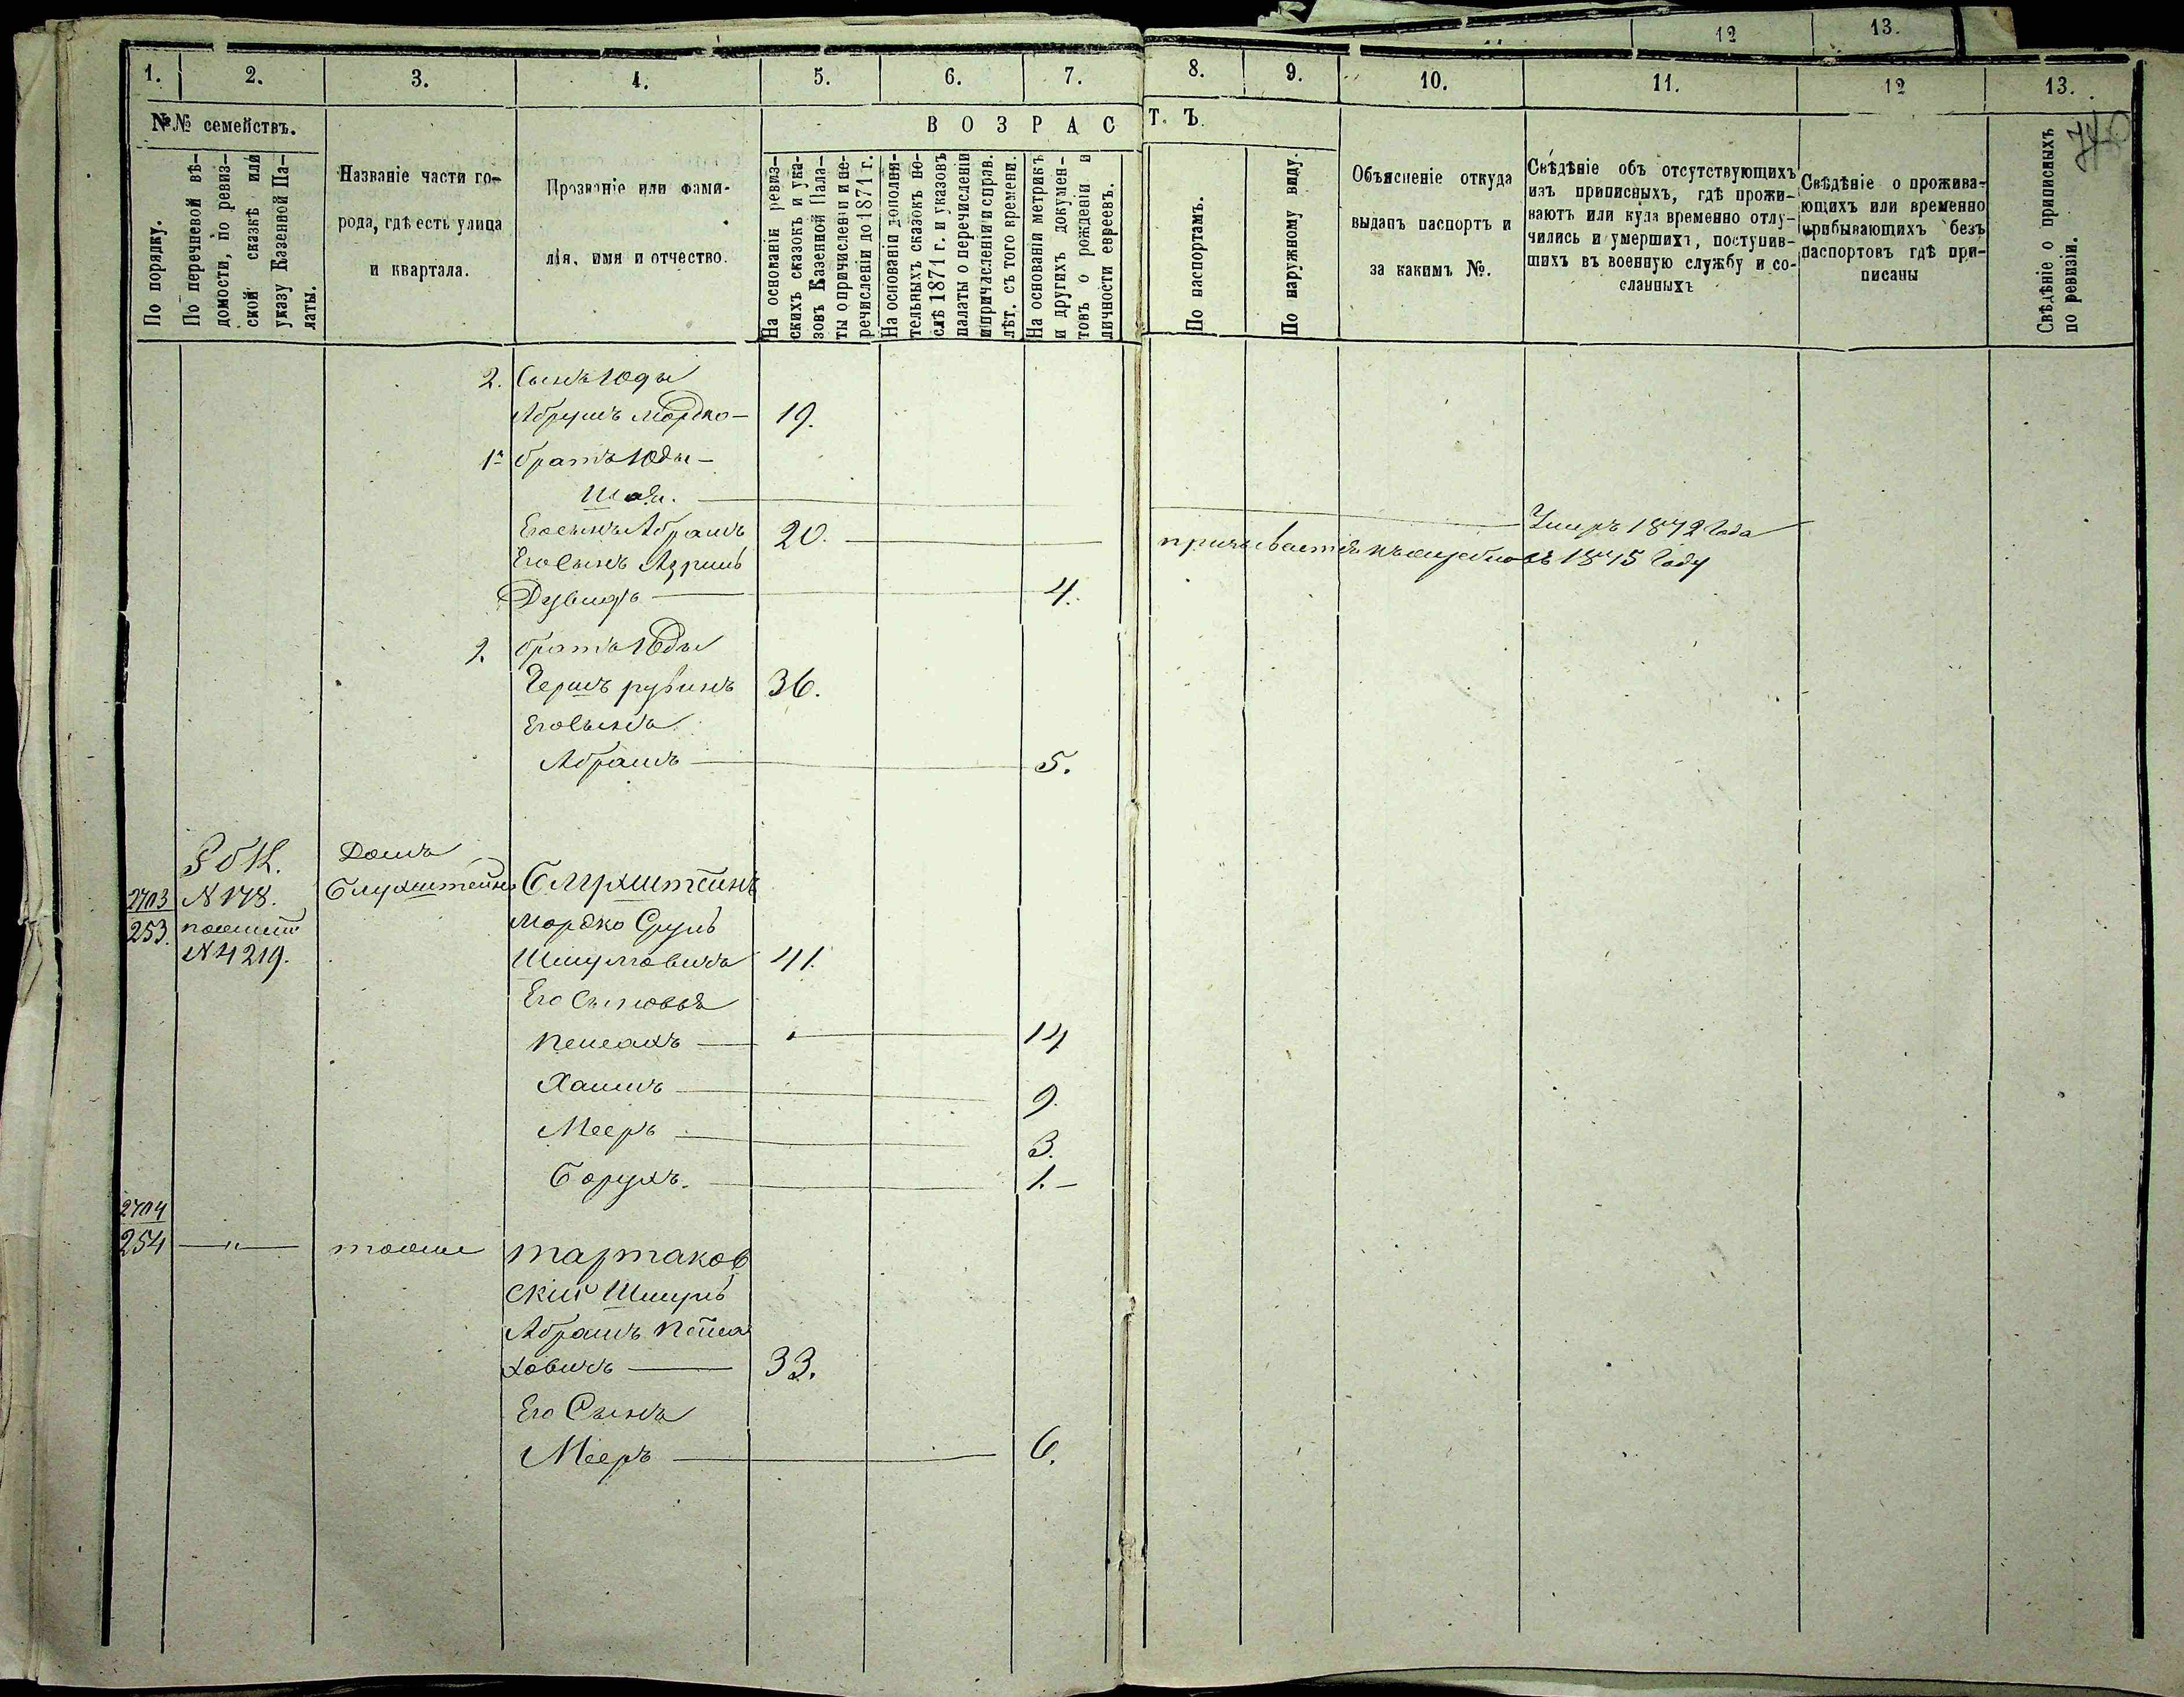 12 13.
1. 2. 3. 4. 5. 6. 7. 8. 9. 10. 11. 12 13.
№№ семействъ.
По порядку.
По перечневой вѣ-
домости, по ревиз-
ской сказкѣ или
указу Казенной Па-
латы.
Названіе части го-
рода, гдѣ есть улица
и квартала.
Прозваніе или фами-
лія, имя и отчество.
ВОЗРАСТЪ.
На основаніи ревиз-
скихъ сказокъ и ука-
зовъ Казенной Пала-
ты о причисленіи и пе-
речисленіи до 1871 г.
На основаніи дополни-
тельныхъ сказокъ по-
слѣ 1871 г. и указовъ
палаты о перечисленіи
и причисленіи и справ.
лѣт. съ того времени.
На основаніи метрикъ
и другихъ докумен-
товъ о рожденіи и
личности евреевъ.
По паспортамъ.
По наружному виду.
Объясненіе откуда
выданъ паспортъ и
за какимъ №.
Свѣдѣніе объ отсутствующихъ
изъ приписныхъ, гдѣ прожи-
ваютъ или куда временно отлу-
чились и умершихъ, поступив-
шихъ въ военную службу и со-
сланныхъ
Свѣдѣніе о прожива-
ющихъ или временно
прибывающихъ безъ
паспортовъ гдѣ при-
писаны
Свѣдѣніе о приписныхъ
по ревизіи.
2. Сынъ Юды
Абрумъ Мордко - 19.
1й братъ Юды -
Шая. Умеръ 1872 года
Его сынъ Абрамъ 20. призывается къ жребію въ 1875 году
Его сынъ
Дувидъ 4.
2. братъ Юды
Гершъ рувинъ 36.
Его сынъ
Абрамъ 5.
Домъ
Блувштейна Блувштейнъ
2703 N 178.
253. N 4219.
Мордко Сруль
Шмулевичъ 41.
Его Сыновья
Пейсахъ 14
Хаимъ 9.
Мееръ 3.
Борухъ. 1. -
2704
254 - " - тоже тартаков
скій Шмуль
Абрамъ Пейса
ховичъ 33.
Его Сынъ
Мееръ 6.